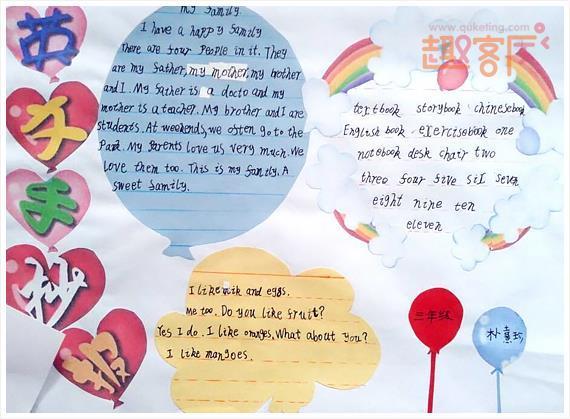 www.quketing.com
趣客厅
英
文
手
抄
报
my family.
I have a happy family
there are four people in it. They
are my father, my mother, my brother
and I. My father is a docto and my
mother is a teacher. My brother and I are
students. At weekends, we often go to the
Park. My parents love us very much. We
love them too. This is my family. A
sweet family.
textbook storybook chinesebook
English book exercisebook one
notebook desk chair two
three four five siI seven
eight nine ten
eleven
I like milk and eggs.
Me too. Do you like fruit?
Yes I do. I like oranges. What about you?
I like mangoes.
三年级
朴慧珍